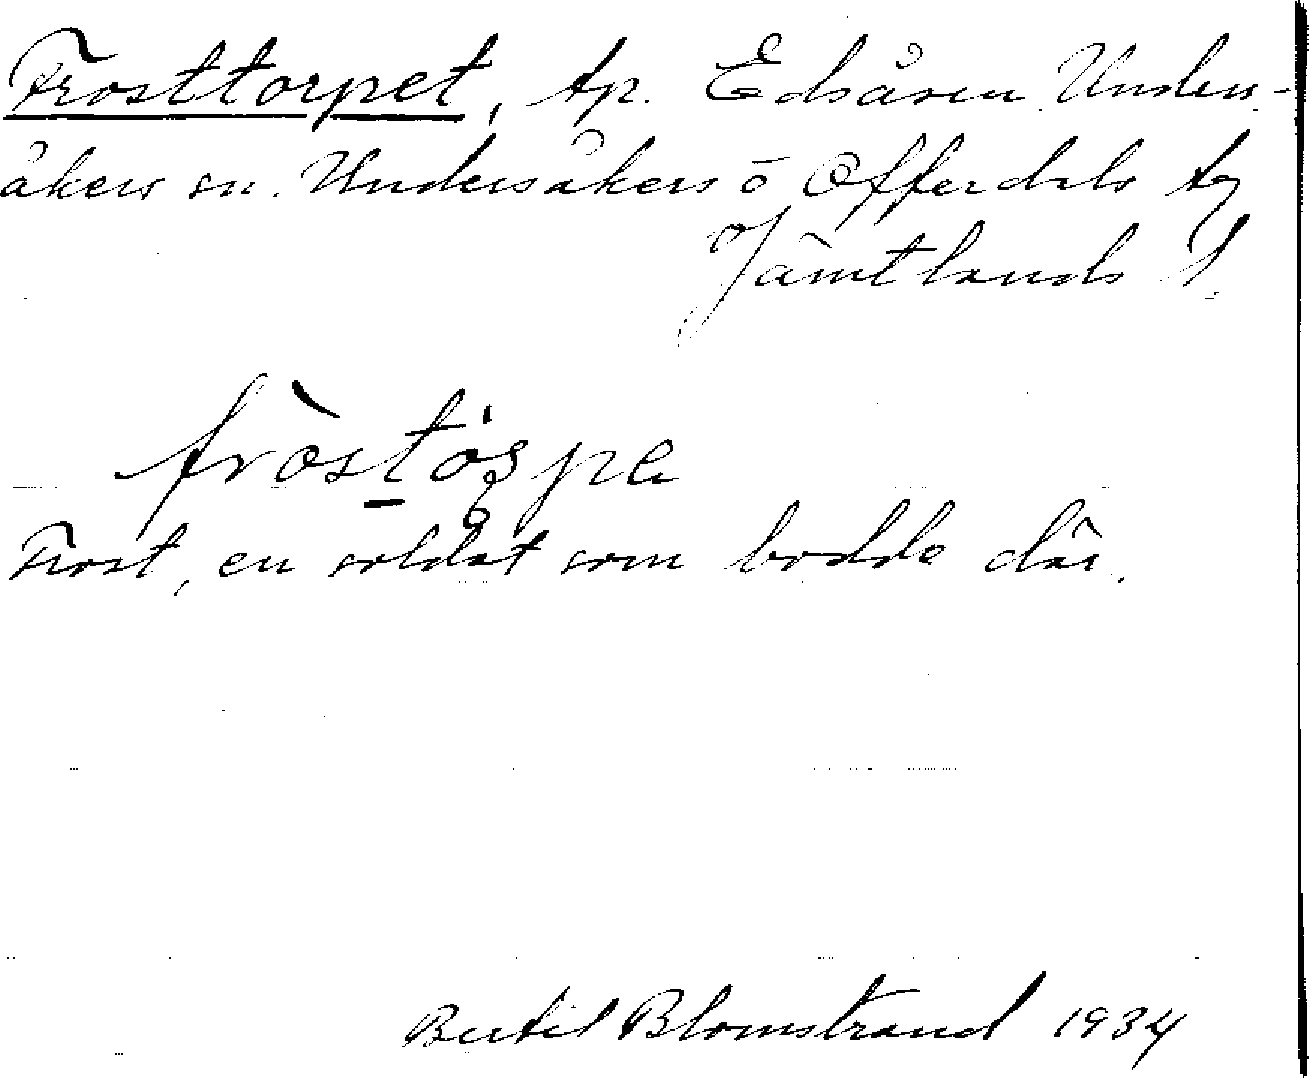 Frosttorpet, tp. Edsåsen Unders-
åkers sn. Undersåkers o Offerdals tg
Jämtlands l.
fròstȯspa
Frost, en soldat som bodde där.
Bertil Blomstrand 1934